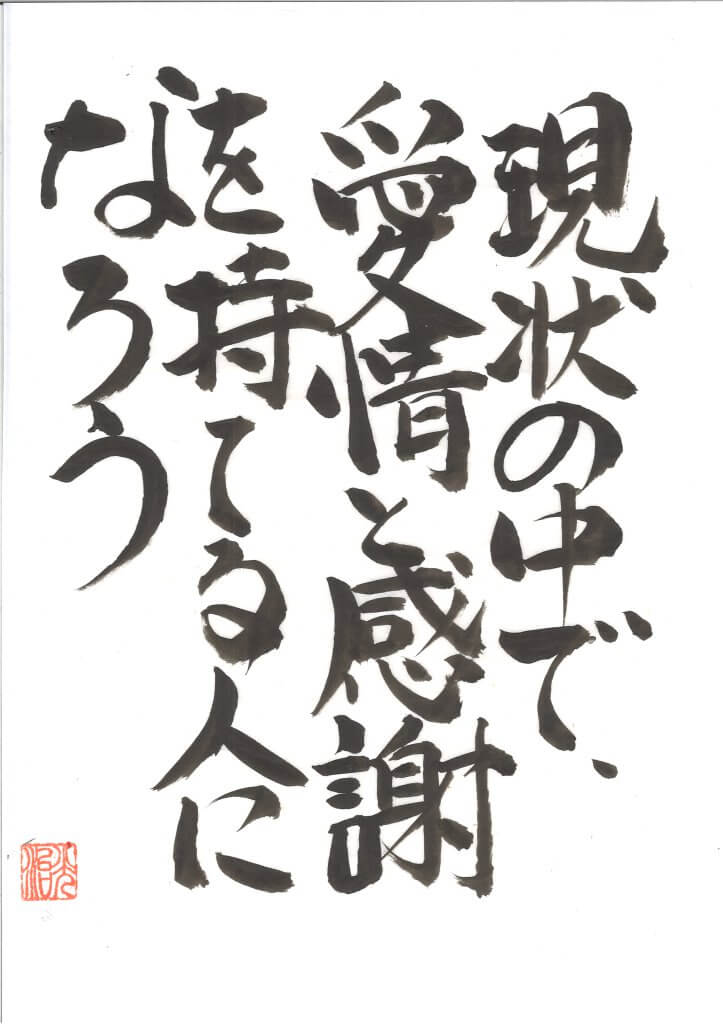 現状の中で、
愛情と感謝
を持てる人に
なろう